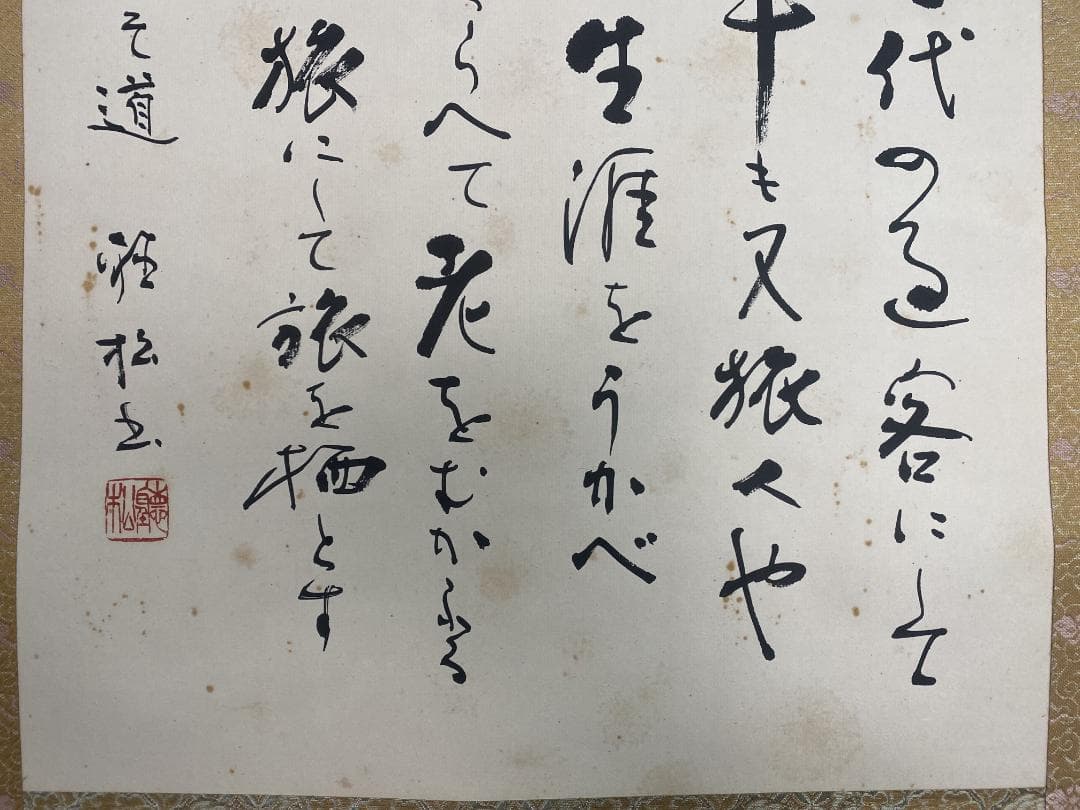 代の過客にして
年も又旅人や
生涯をうかべ
らへて老をむかふる
旅にして旅を栖とす
そ道 聴松書
聽松